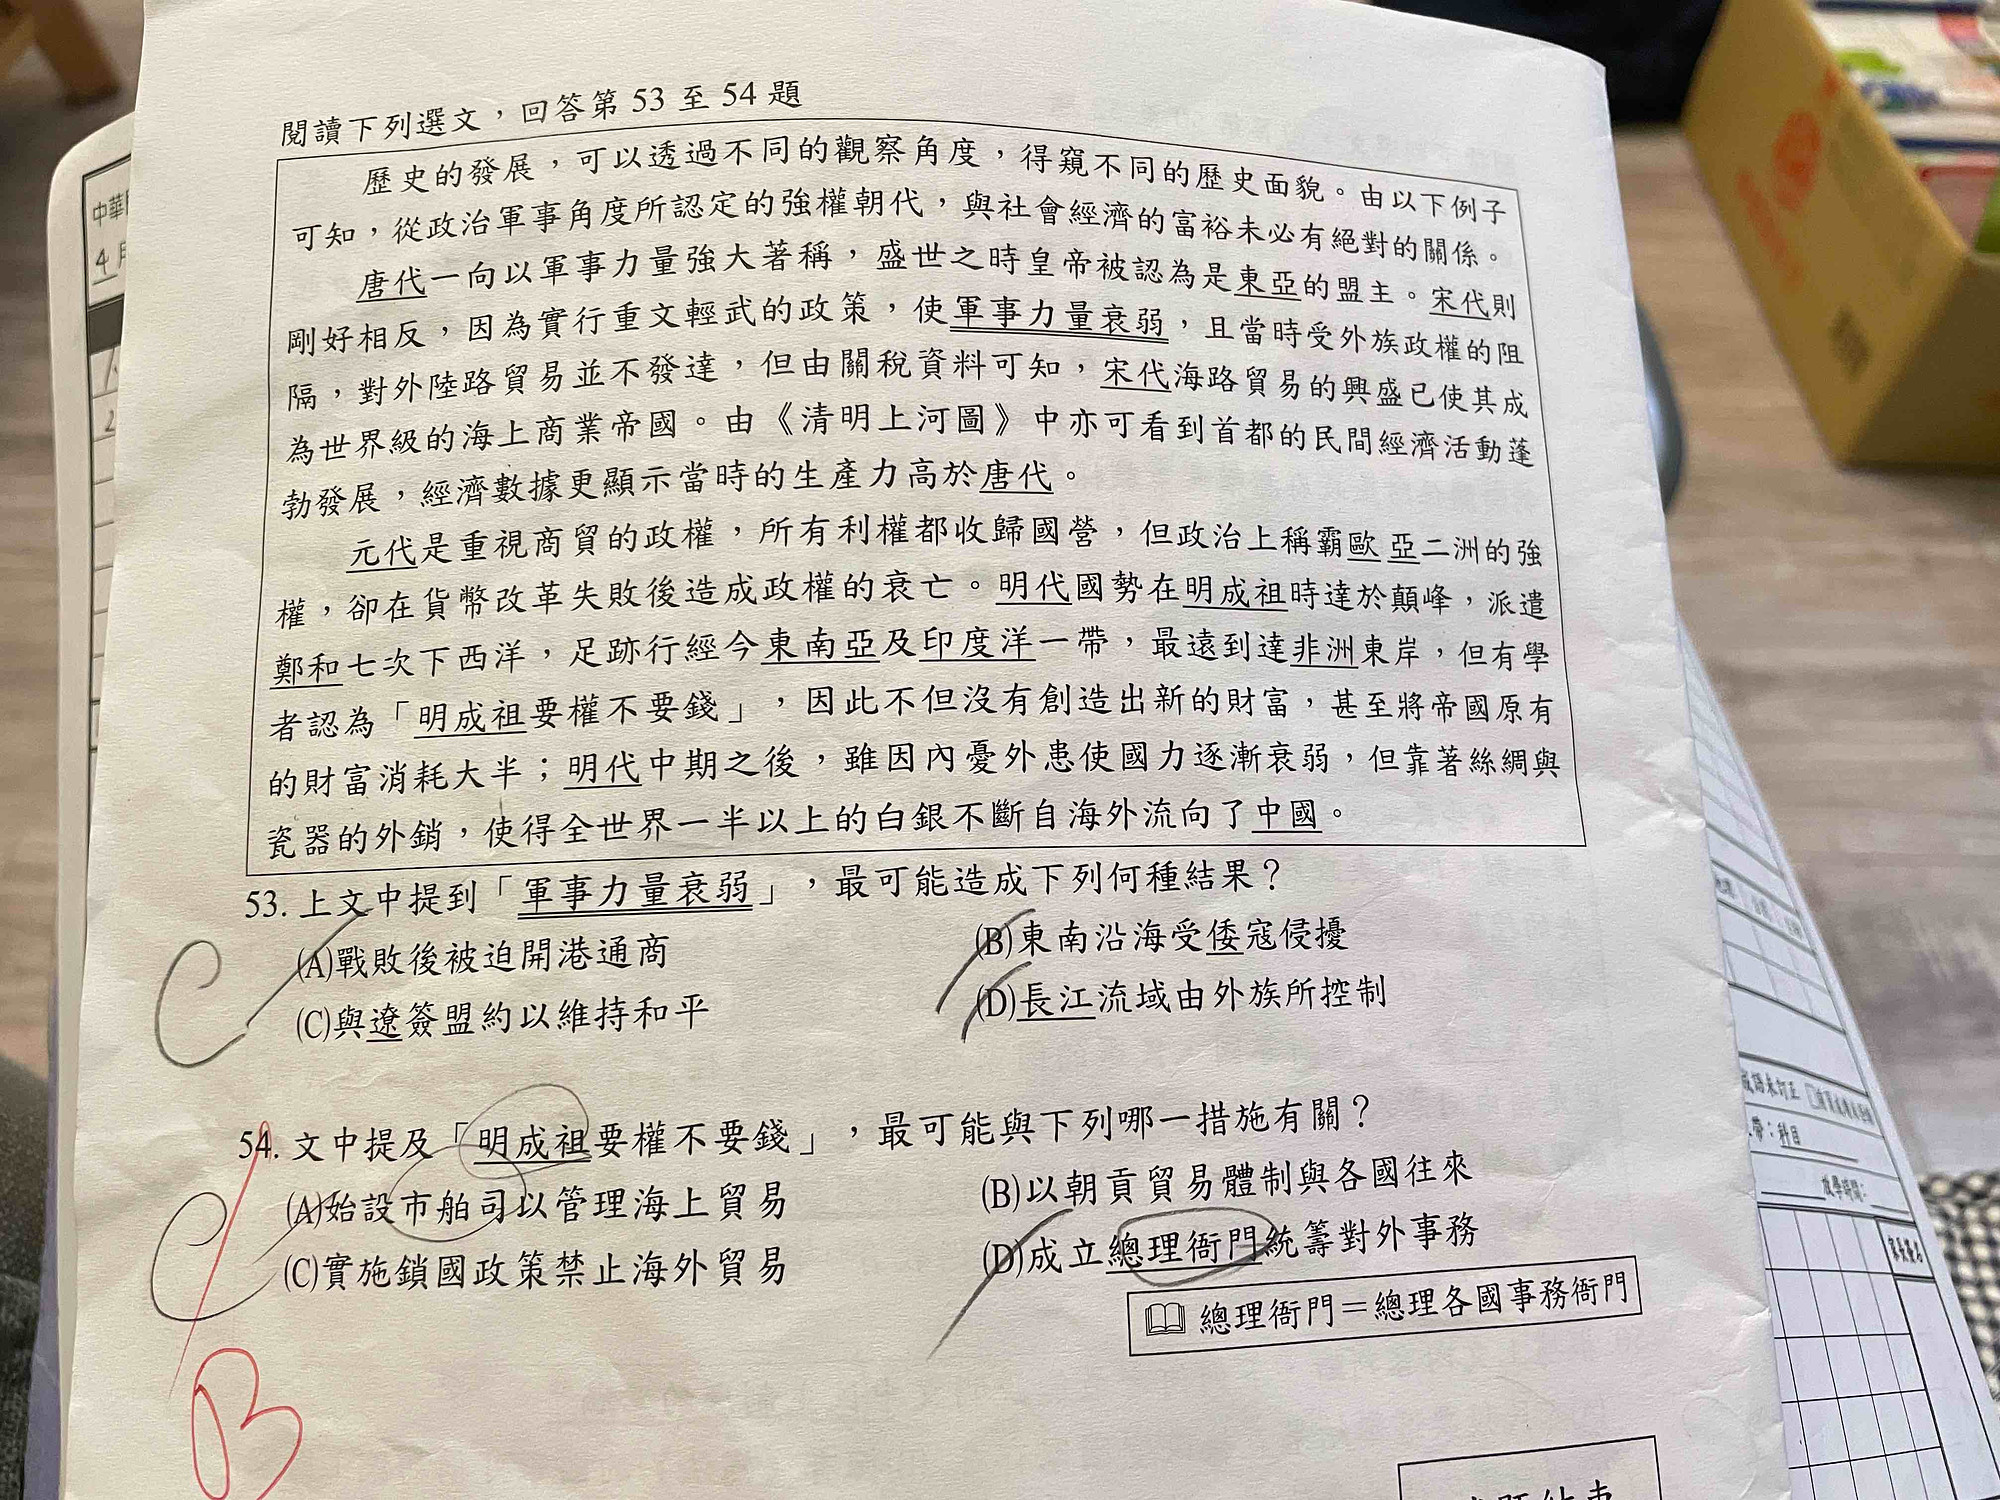 閱讀下列選文，回答第 53 至 54 題
歷史的發展，可以透過不同的觀察角度，得窺不同的歷史面貌。由以下例子
可知，從政治軍事角度所認定的強權朝代，與社會經濟的富裕未必有絕對的關係。
唐代一向以軍事力量強大著稱，盛世之時皇帝被認為是東亞的盟主。宋代則
剛好相反，因為實行重文輕武的政策，使軍事力量衰弱，且當時受外族政權的阻
隔，對外陸路貿易並不發達，但由關稅資料可知，宋代海路貿易的興盛已使其成
為世界級的海上商業帝國。由《清明上河圖》中亦可看到首都的民間經濟活動蓬
勃發展，經濟數據更顯示當時的生產力高於唐代。
元代是重視商貿的政權，所有利權都收歸國營，但政治上稱霸歐亞二洲的強
權，卻在貨幣改革失敗後造成政權的衰亡。明代國勢在明成祖時達於顛峰，派遣
鄭和七次下西洋，足跡行經今東南亞及印度洋一帶，最遠到達非洲東岸，但有學
者認為「明成祖要權不要錢」，因此不但沒有創造出新的財富，甚至將帝國原有
的財富消耗大半；明代中期之後，雖因內憂外患使國力逐漸衰弱，但靠著絲綢與
瓷器的外銷，使得全世界一半以上的白銀不斷自海外流向了中國。
53. 上文中提到「軍事力量衰弱」，最可能造成下列何種結果？
C
(A)戰敗後被迫開港通商
(B)東南沿海受倭寇侵擾
(C)與遼簽盟約以維持和平
(D)長江流域由外族所控制
54. 文中提及「明成祖要權不要錢」，最可能與下列哪一措施有關？
C
(A)始設市舶司以管理海上貿易
(B)以朝貢貿易體制與各國往來
(C)實施鎖國政策禁止海外貿易
(D)成立總理衙門統籌對外事務
總理衙門＝總理各國事務衙門
B
中華
4月
科目
放學時間：